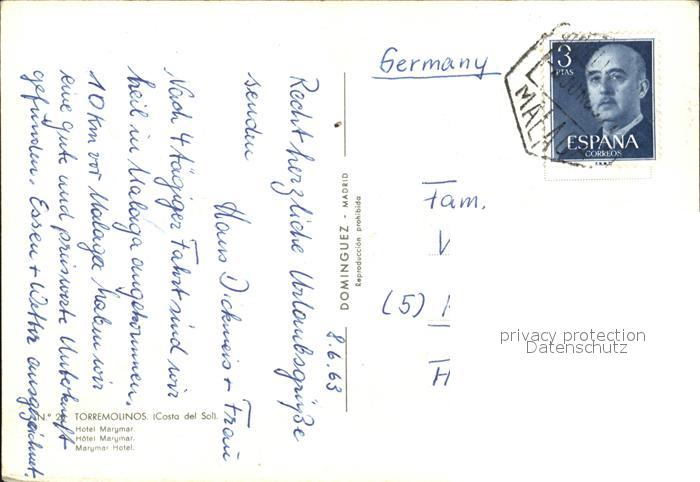 8.6.63
Recht herzliche Urlaubsgrüße
senden
Hans Dickmeis + Frau
Nach 4 tägiger Fahrt sind wir
heil in Malaga angekommen.
10 km vor Malaga haben wir
eine gute und preiswerte Unterkunft
gefunden. Essen + Wetter ausgezeichnet.
DOMINGUEZ - MADRID
Reproducción prohibida
N.º 2 TORREMOLINOS. (Costa del Sol).
Hotel Marymar.
Hôtel Marymar.
Marymar Hotel.
Germany
3
PTAS
ESPAÑA
CORREOS
F.N.M.T.
MALA
Fam.
V
(5)
H
privacy protection
Datenschutz